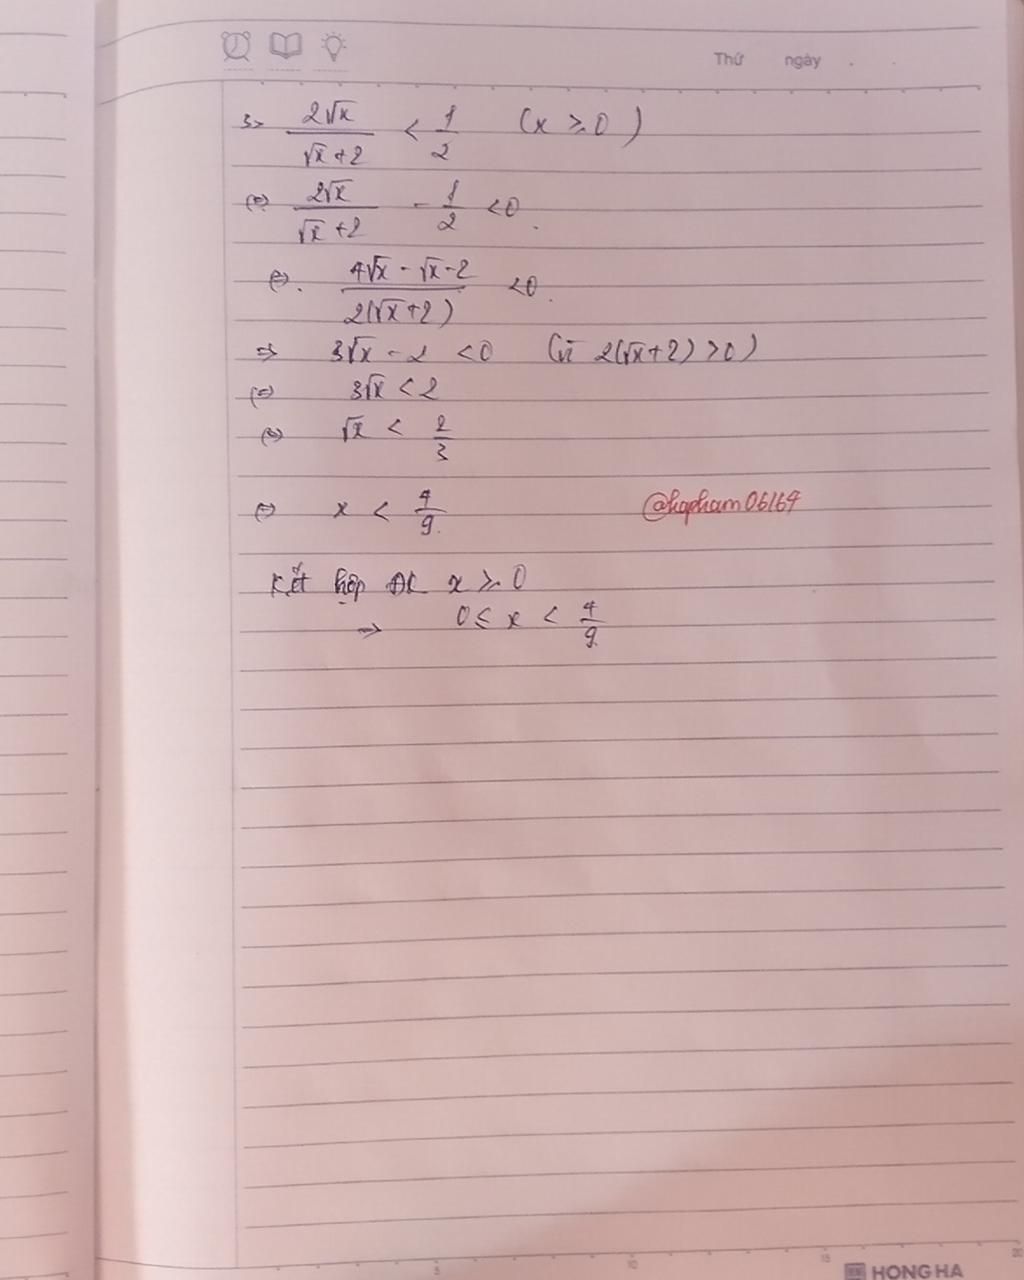 Thứ ngày . .
3> 2√x / √x+2 < 1/2 (x ≥ 0)
(=) 2√x / √x+2 - 1/2 <0.
(=). 4√x - √x - 2 / 2(√x+2) <0.
=> 3√x - 2 <0 (vì 2(√x+2) >0)
(=) 3√x < 2
(=) √x < 2/3
(=) x < 4/9.
@hapham06164
Kết hợp ĐK x ≥ 0
=> 0 ≤ x < 4/9.
5 10 15 20
HONG HA